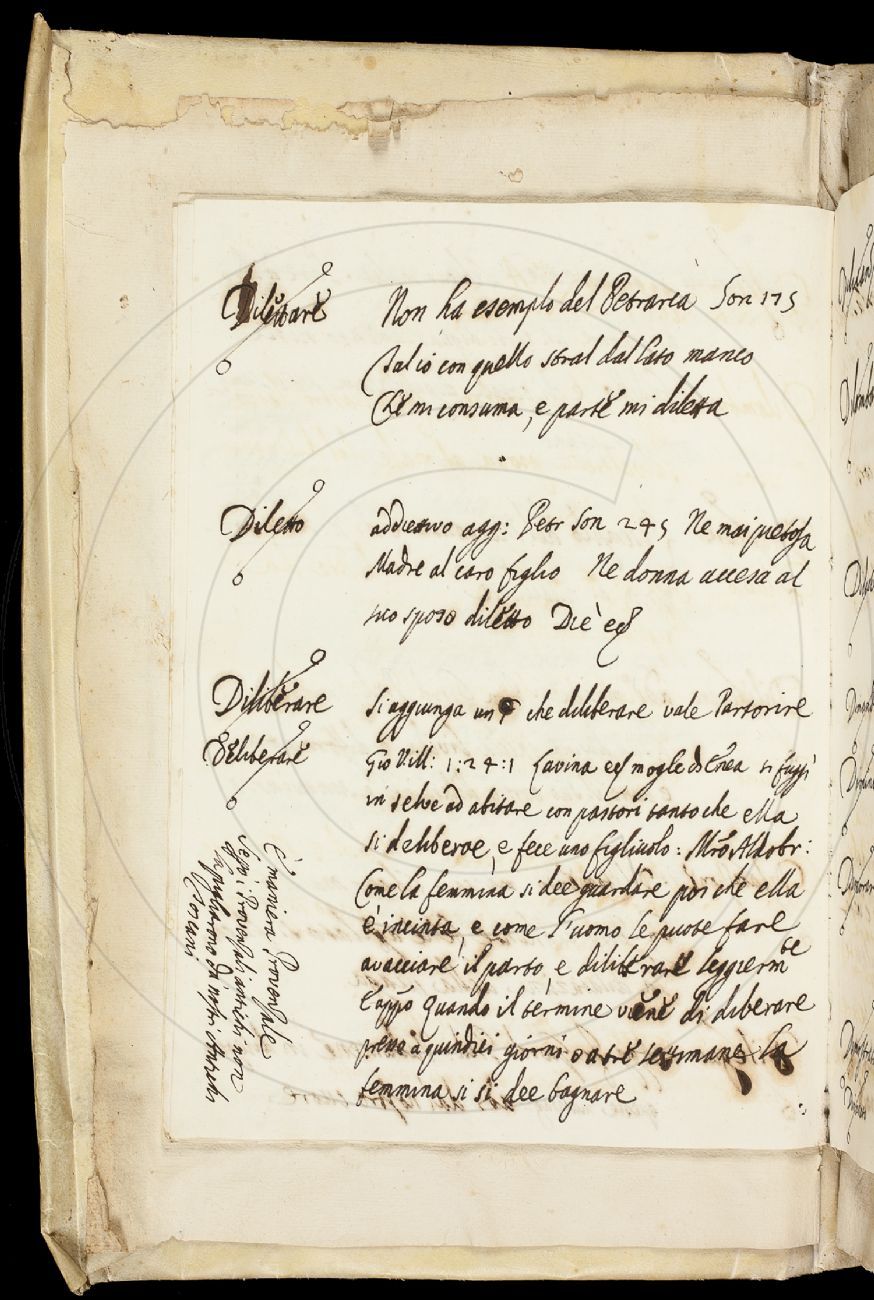 Dilettare Non ha esempio del Petrarca Son 175
Tal io con quello stral dal lato manco
Che mi consuma, e parte mi diletta
Diletto addiettivo agg: Petr Son 245 Ne mai pietosa
Madre al caro figlio Ne donna accesa al
suo sposo diletto Die ec
Diliberare si aggiunga un che diliberare vale Partorire
Deliberare Gio Vill: 1:24:1 Lavina ec mogle di Enea si fuggì
in selve ad abitare con pastori tanto che ella
si deliberoe, e fece uno figliuolo: Mro Aldobr:
Come la femmina si dee guardare poi che ella
è incinta, e come l'uomo le puote fare
avacciare il parto, e diliberare leggierm.te
E appo Quando il termine viene di diliberare
presso a quindici giorni o a tre settimane la
femmina si si dee bagnare
È maniera Provenzale
Segni i Provenzali antichi non
la pigliarono da nostri Antichi
Toscani